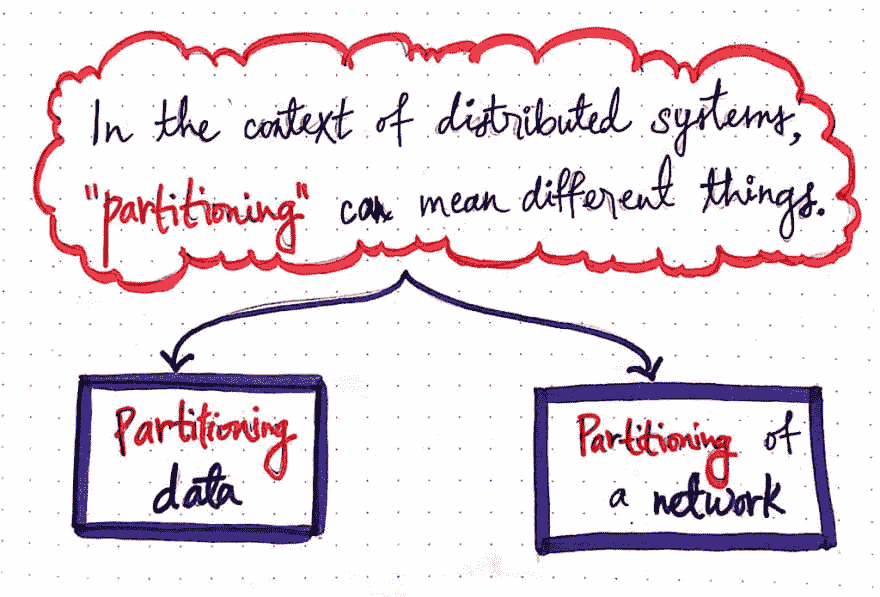 In the context of distributed systems,
"partitioning" can mean different things.
Partitioning
data
Partitioning of
a network